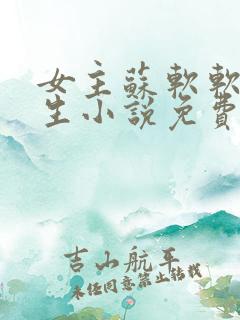 女主蘇軟軟
生小說免費
吉山航平
未经同意禁止转载